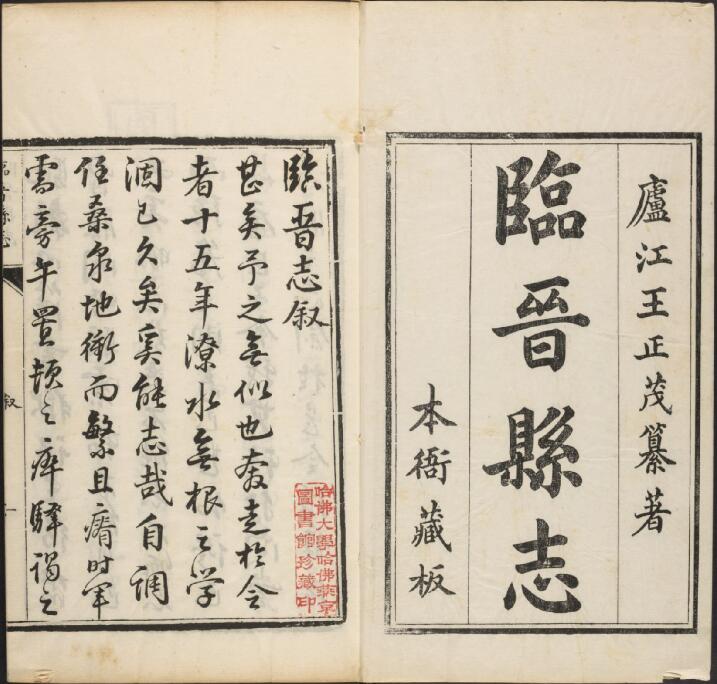 廬江王正茂纂著
臨晉縣志
本衙藏板
臨晉志叙
甚矣予之無似也奔走於令
者十五年潦水無根之学
涸已久矣奚能志哉自調
任桑泉地衝而繁且瘠时军
需旁午置頓之瘁驿谒之
哈佛大學哈佛燕京
圖書館珍藏印
臨晉縣志
叙